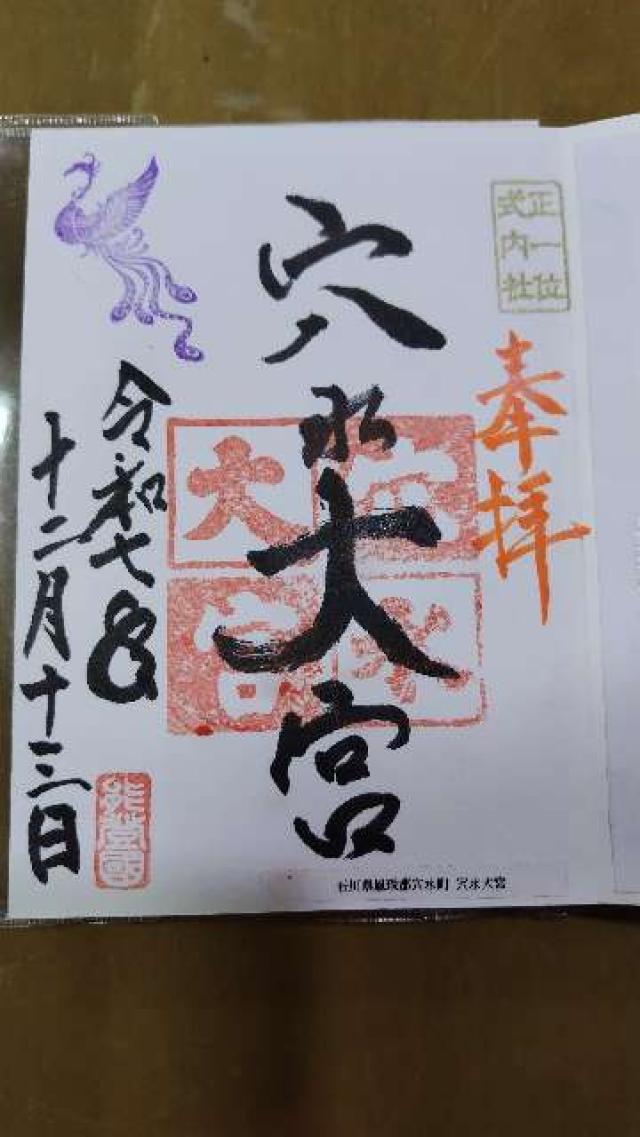 正一位
式内社
奉拝
穴水大宮
穴水
大宮
令和七年
十二月十三日
能登國
石川県鳳珠郡穴水町 穴水大宮